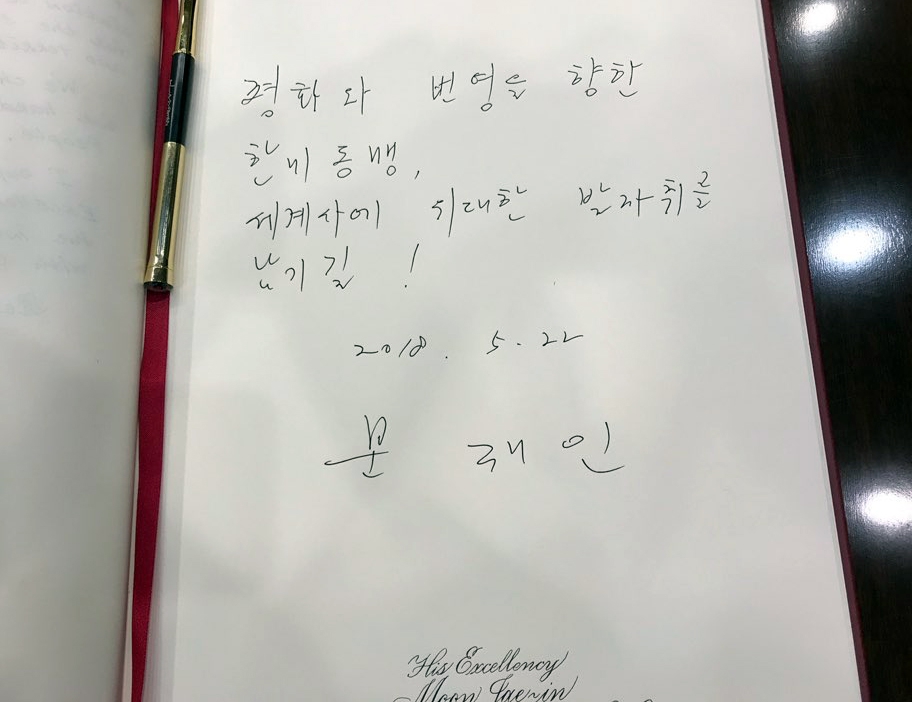 평화와 번영을 향한
한미동맹,
세계사에 위대한 발자취를
남기길 !
2018. 5. 22
문 재 인
His Excellency
Moon Jae-in